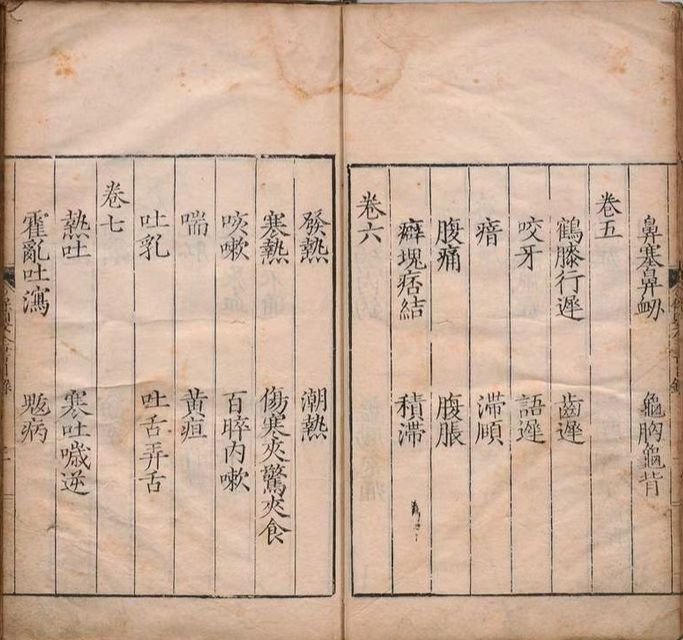 鼻塞鼻衂 龜胸龜背
卷五
鶴膝行遲 齒遲
咬牙 語遲
瘖 滯頤
腹痛 腹脹
癖塊痞結 積滯
卷六
發熱 潮熱
寒熱 傷寒夾驚夾食
咳嗽 百晬內嗽
喘 黃疸
吐乳 吐舌弄舌
卷七
熱吐 寒吐噦逆
霍亂吐瀉 病